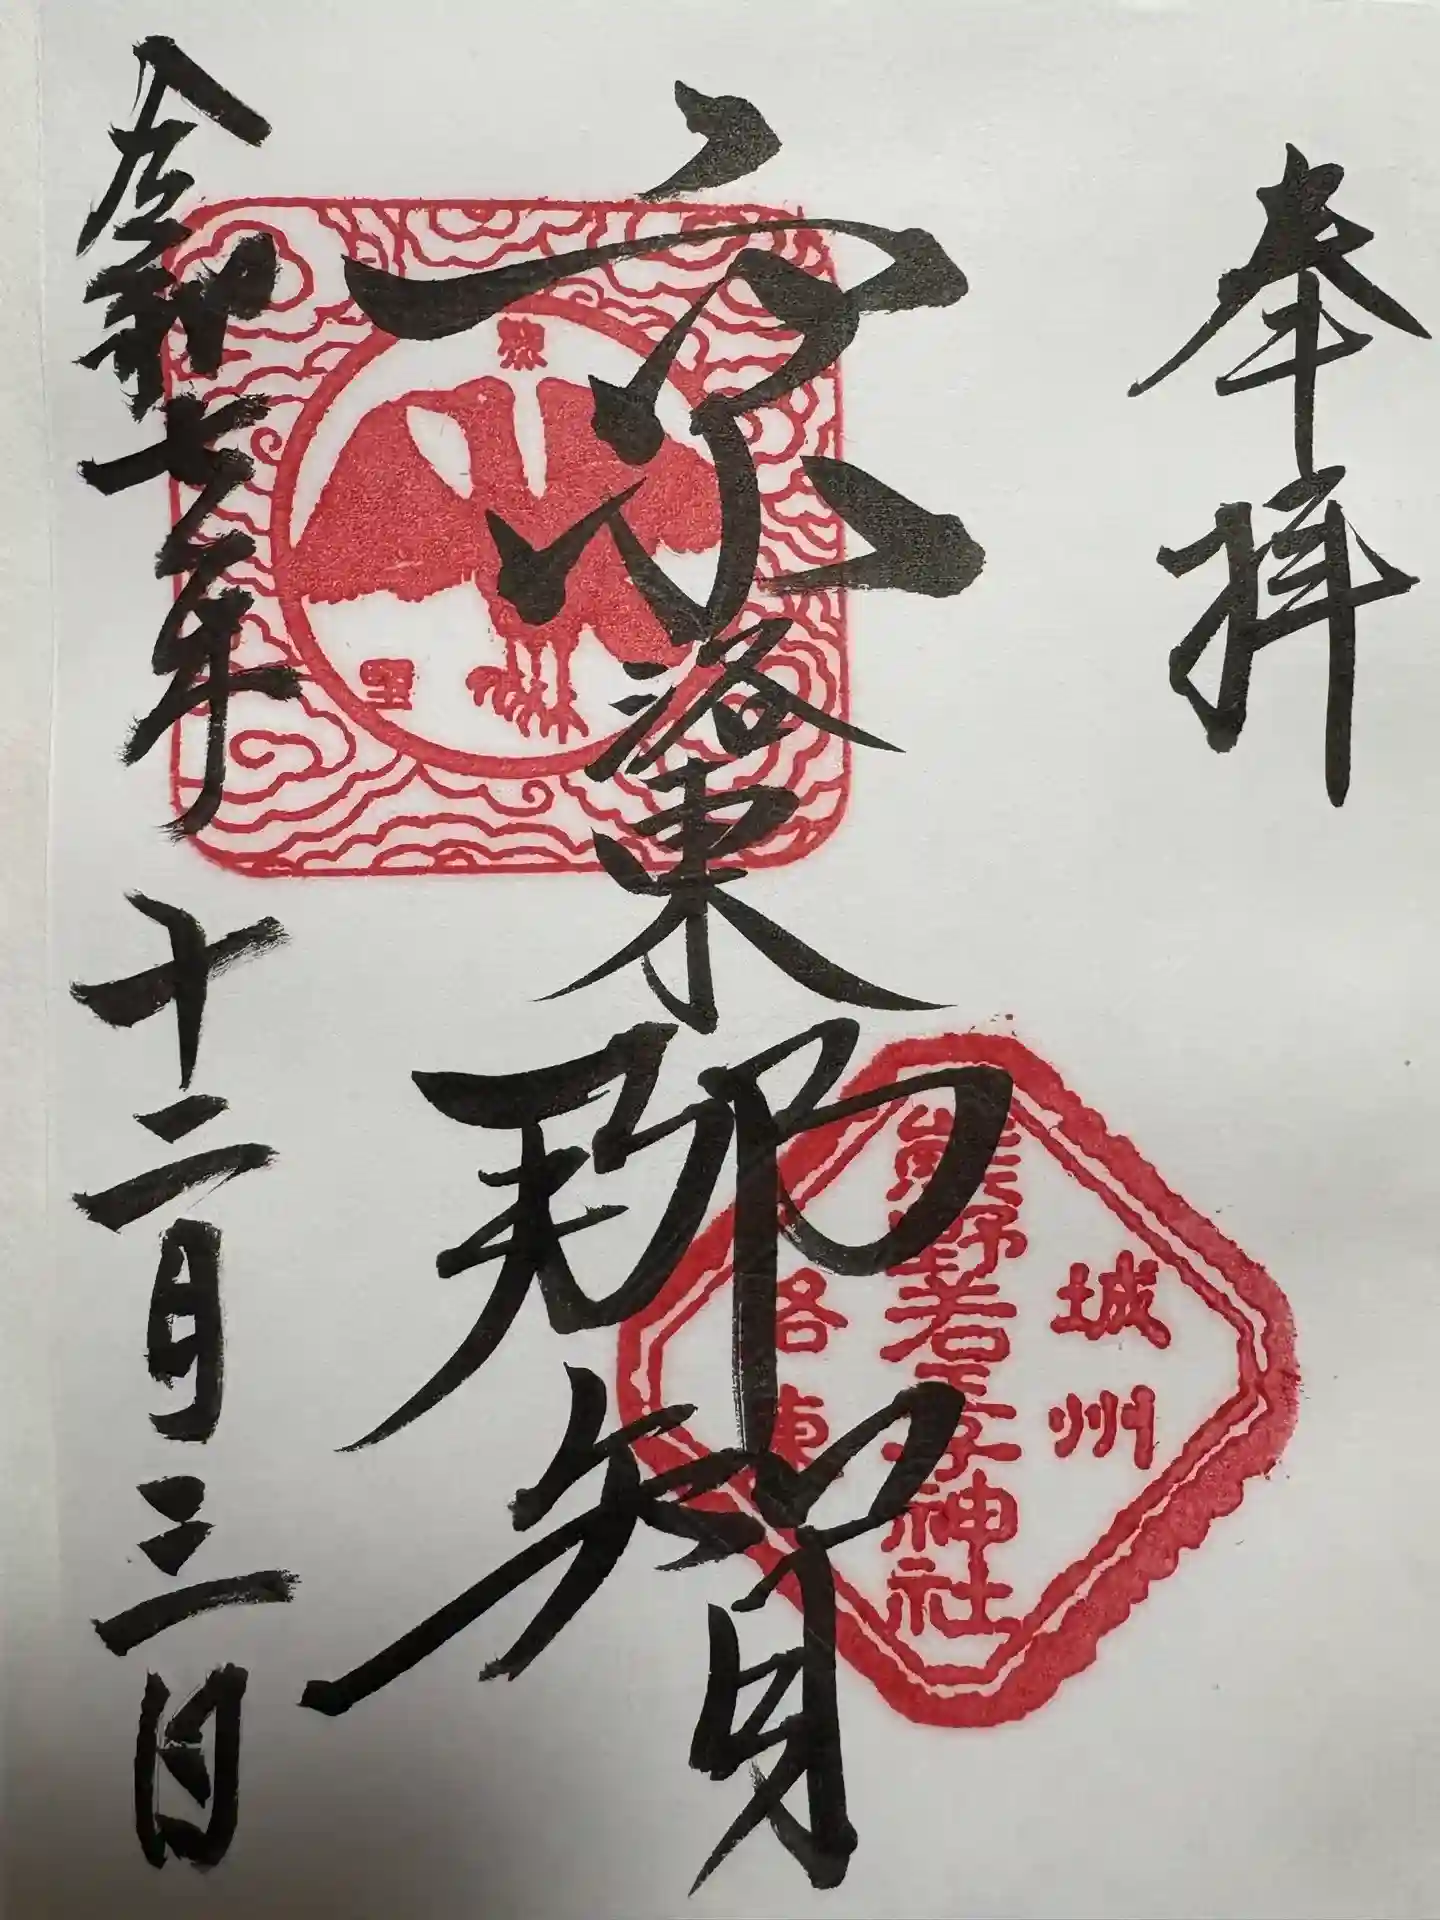 奉拝
京洛東那智
令和七年十二月三日
熊野
城州
熊野若王子神社
洛東